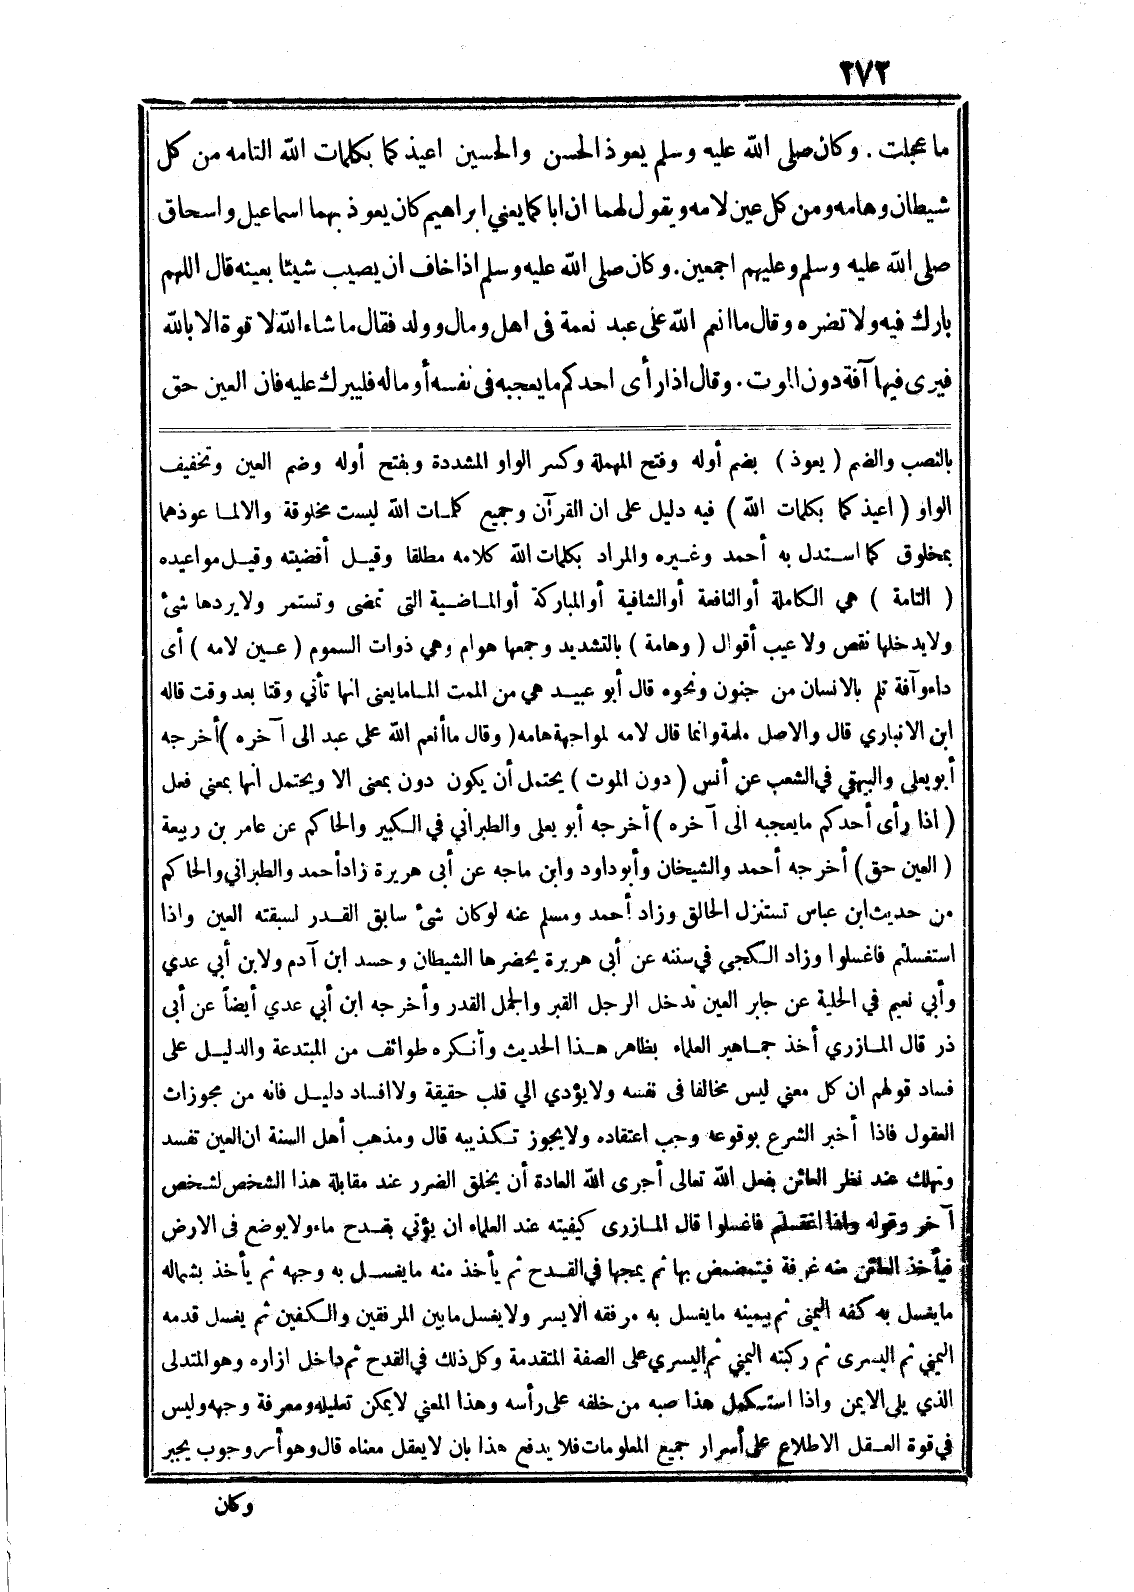 ٢٧٢
ما عجلت . وكان صلى الله عليه وسلم يعوذ الحسن والحسين اعيذ كما بكلمات الله التامه من كل
شيطان وهامه ومن كل عين لامه ويقول لهما ان ابا كما يعني ابراهيم كان يعوذ بهما اسماعيل واسحاق
صلى الله عليه وسلم وعليهم اجمعين. وكان صلى الله عليه وسلم اذا خاف ان يصيب شيئا بعينه قال اللهم
بارك فيه ولا تضره وقال ما انعم الله على عبد نعمة فى اهل ومال وولد فقال ما شاء الله لا قوة الا بالله
فيرى فيها آفة دون الموت . وقال اذا رأى احدكم ما يعجبه فى نفسه أو ماله فليبرك عليه فان العين حق
بالنصب والضم ( يعوذ ) بضم أوله وفتح المهملة وكسر الواو المشددة وبفتح أوله وضم العين وتخفيف
الواو ( اعيذ كما بكلمات الله ) فيه دليل على ان القرآن وجميع كلمات الله ليست مخلوقة والا لما عوذهما
بمخلوق كما استدل به أحمد وغيره والمراد بكلمات الله كلامه مطلقا وقيل أقضيته وقيل مواعيده
( التامة ) هي الكاملة أو النافعة أو الشافية أو المباركة أو الماضية التى تمضى وتستمر ولا يردها شئ
ولا يدخلها نقص ولا عيب أقوال ( وهامة ) بالتشديد وجمعها هوام وهي ذوات السموم ( عين لامه ) أى
داء وآفة تلم بالانسان من جنون ونحوه قال أبو عبيد هي من الممت الماما يعنى انها تأتي وقتا بعد وقت قاله
ابن الانباري قال والاصل ملمة وانما قال لامه لمواجهة هامه ( وقال ما أنعم الله على عبد الى آخره ) أخرجه
أبو يعلى والبيهقي في الشعب عن أنس ( دون الموت ) يحتمل أن يكون دون بمعنى الا ويحتمل انها بمعني فعل
( اذا رأى أحدكم ما يعجبه الى آخره ) أخرجه أبو يعلى والطبراني في الكبير والحاكم عن عامر بن ربيعة
( العين حق ) أخرجه أحمد والشيخان وأبو داود وابن ماجه عن أبى هريرة زاد أحمد والطبراني والحاكم
من حديث ابن عباس تستنزل الحالق وزاد أحمد ومسلم عنه لو كان شئ سابق القدر لسبقته العين واذا
استغسلتم فاغسلوا وزاد الكجي في سننه عن أبى هريرة يحضرها الشيطان وحسد ابن آدم ولابن أبي عدي
وأبي نعيم في الحلية عن جابر العين تدخل الرجل القبر والجمل القدر وأخرجه ابن أبي عدي أيضاً عن أبى
ذر قال المازري أخذ جماهير العلماء بظاهر هذا الحديث وأنكره طوائف من المبتدعة والدليل على
فساد قولهم ان كل معني ليس مخالفا فى نفسه ولا يؤدي الي قلب حقيقة ولا افساد دليل فانه من مجوزات
العقول فاذا أخبر الشرع بوقوعه وجب اعتقاده ولا يجوز تكذيبه قال ومذهب أهل السنة ان العين تفسد
وتهلك عند نظر العائن بفعل الله تعالى أجرى الله العادة أن يخلق الضرر عند مقابلة هذا الشخص لشخص
آخر وقوله واذا اغتسلتم فاغسلوا قال المازرى كيفيته عند العلماء ان يؤتي بقدح ماء ولا يوضع فى الارض
فيأخذ العائن منه غرفة فيتمضمض بها ثم يمجها في القدح ثم يأخذ منه ما يغسل به وجهه ثم يأخذ بشماله
ما يغسل به كفه اليمنى ثم بيمينه ما يغسل به مرفقه الايسر ولا يغسل ما بين المرفقين والكفين ثم يغسل قدمه
اليمني ثم اليسرى ثم ركبته اليمني ثم اليسري على الصفة المتقدمة وكل ذلك في القدح ثم داخل ازاره وهو المتدلى
الذي يلى الايمن واذا استكمل هذا صبه من خلفه على رأسه وهذا المعني لا يمكن تعليله ومعرفة وجهه وليس
في قوة العقل الاطلاع على أسرار جميع المعلومات فلا يدفع هذا بان لا يعقل معناه قال وهو أمر وجوب يجبر
وكان